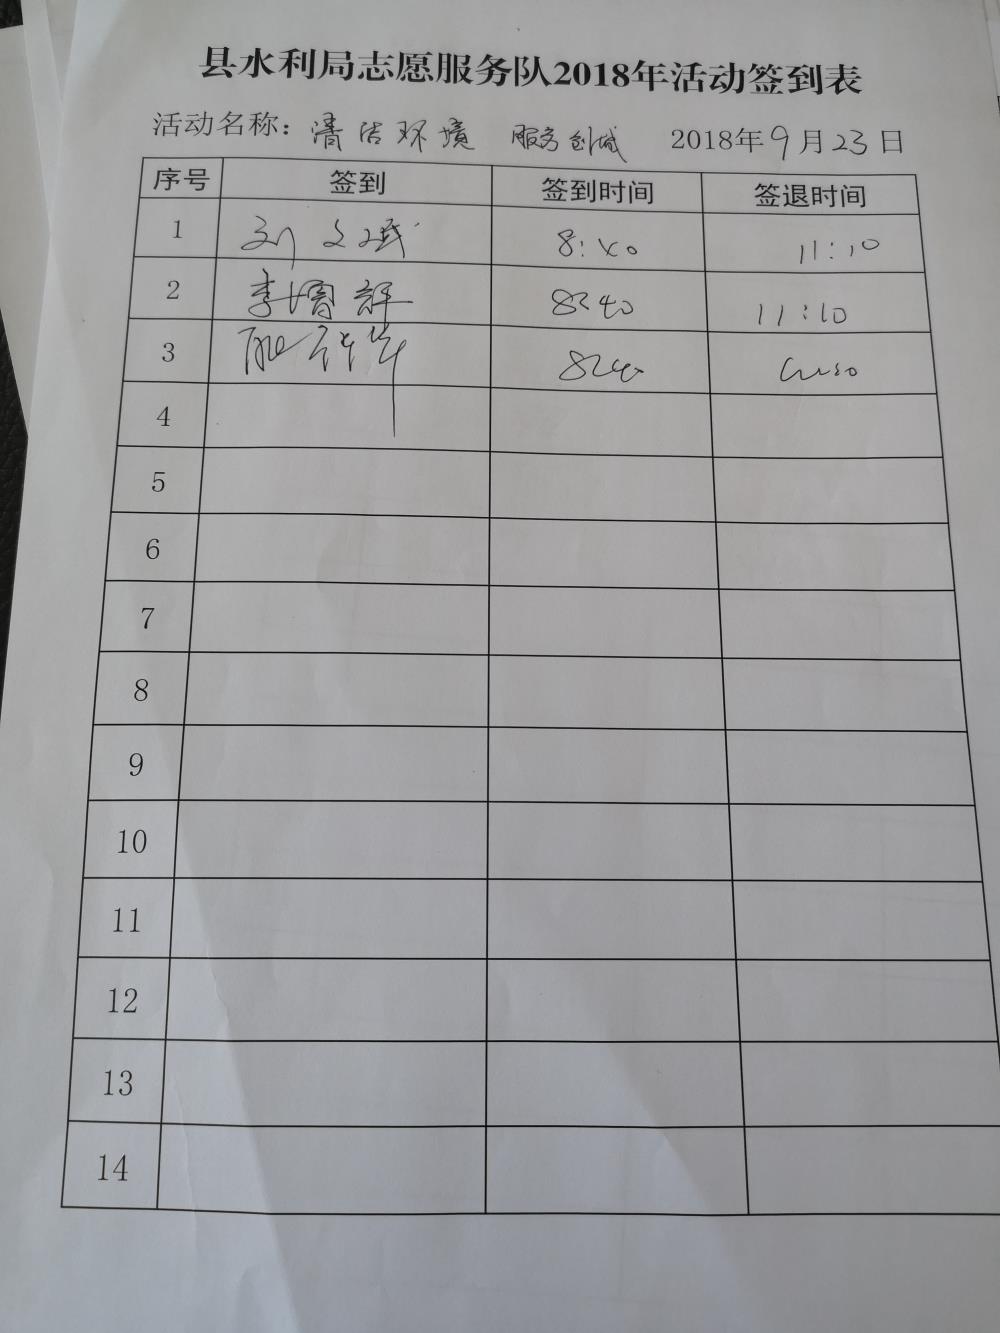 县水利局志愿服务队2018年活动签到表
活动名称：清洁环境 服务创城 2018年9月23日
序号 签到 签到时间 签退时间
1 刘文斌 8:40 11:10
2 李增辉 8:40 11:10
3 8:40
4
5
6
7
8
9
10
11
12
13
14